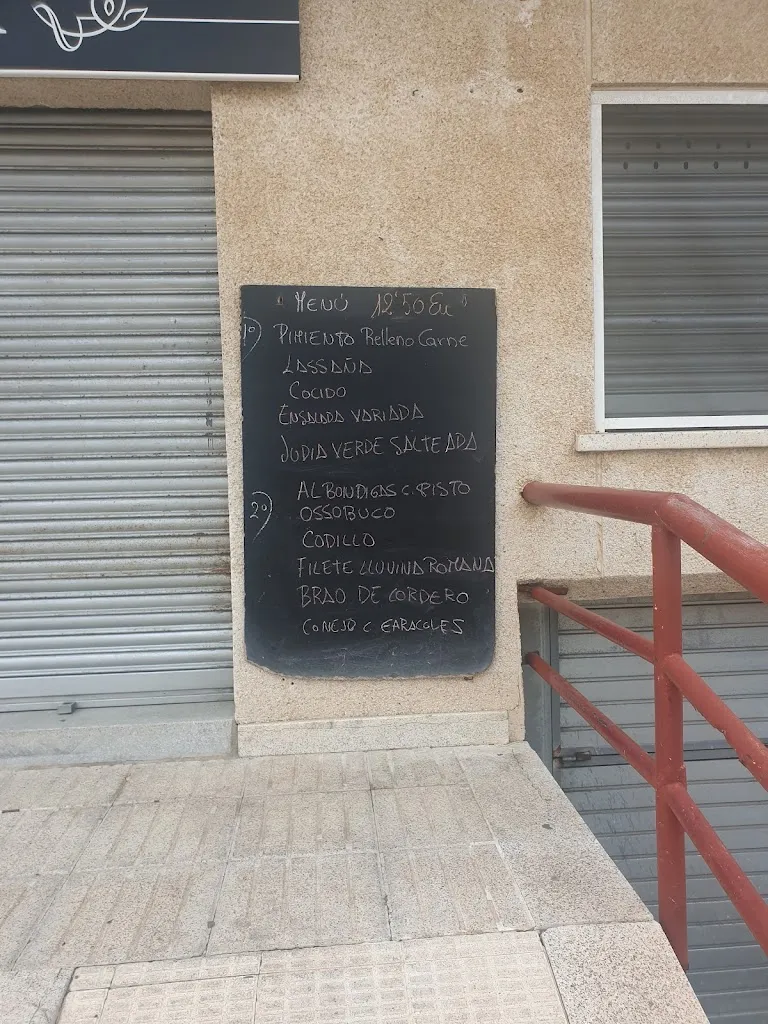 MENÚ 12'50 Eu
1º) PIMIENTO Relleno Carne
LASSAÑA
COCIDO
ENSALADA VARIADA
JUDIA VERDE SALTEADA
2º) ALBONDIGAS C. PISTO
OSSOBUCO
CODILLO
FILETE LLUVINA ROMANA
BRAO DE CORDERO
CONEJO C CARACOLES